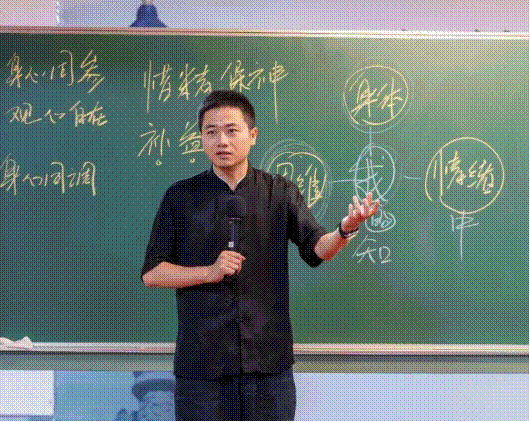 身心同参
观心自在
身心同调
惜精保神
补益
身体
思维
我
情绪
中
知